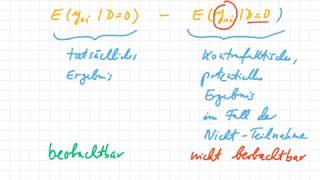 E(y₀ᵢ | D=0) - E(y₀ᵢ | D=0)
tatsächliches
Ergebnis
kontrafaktisches,
potentielles
Ergebnis
im Fall der
Nicht-Teilnahme
beobachtbar
nicht beobachtbar